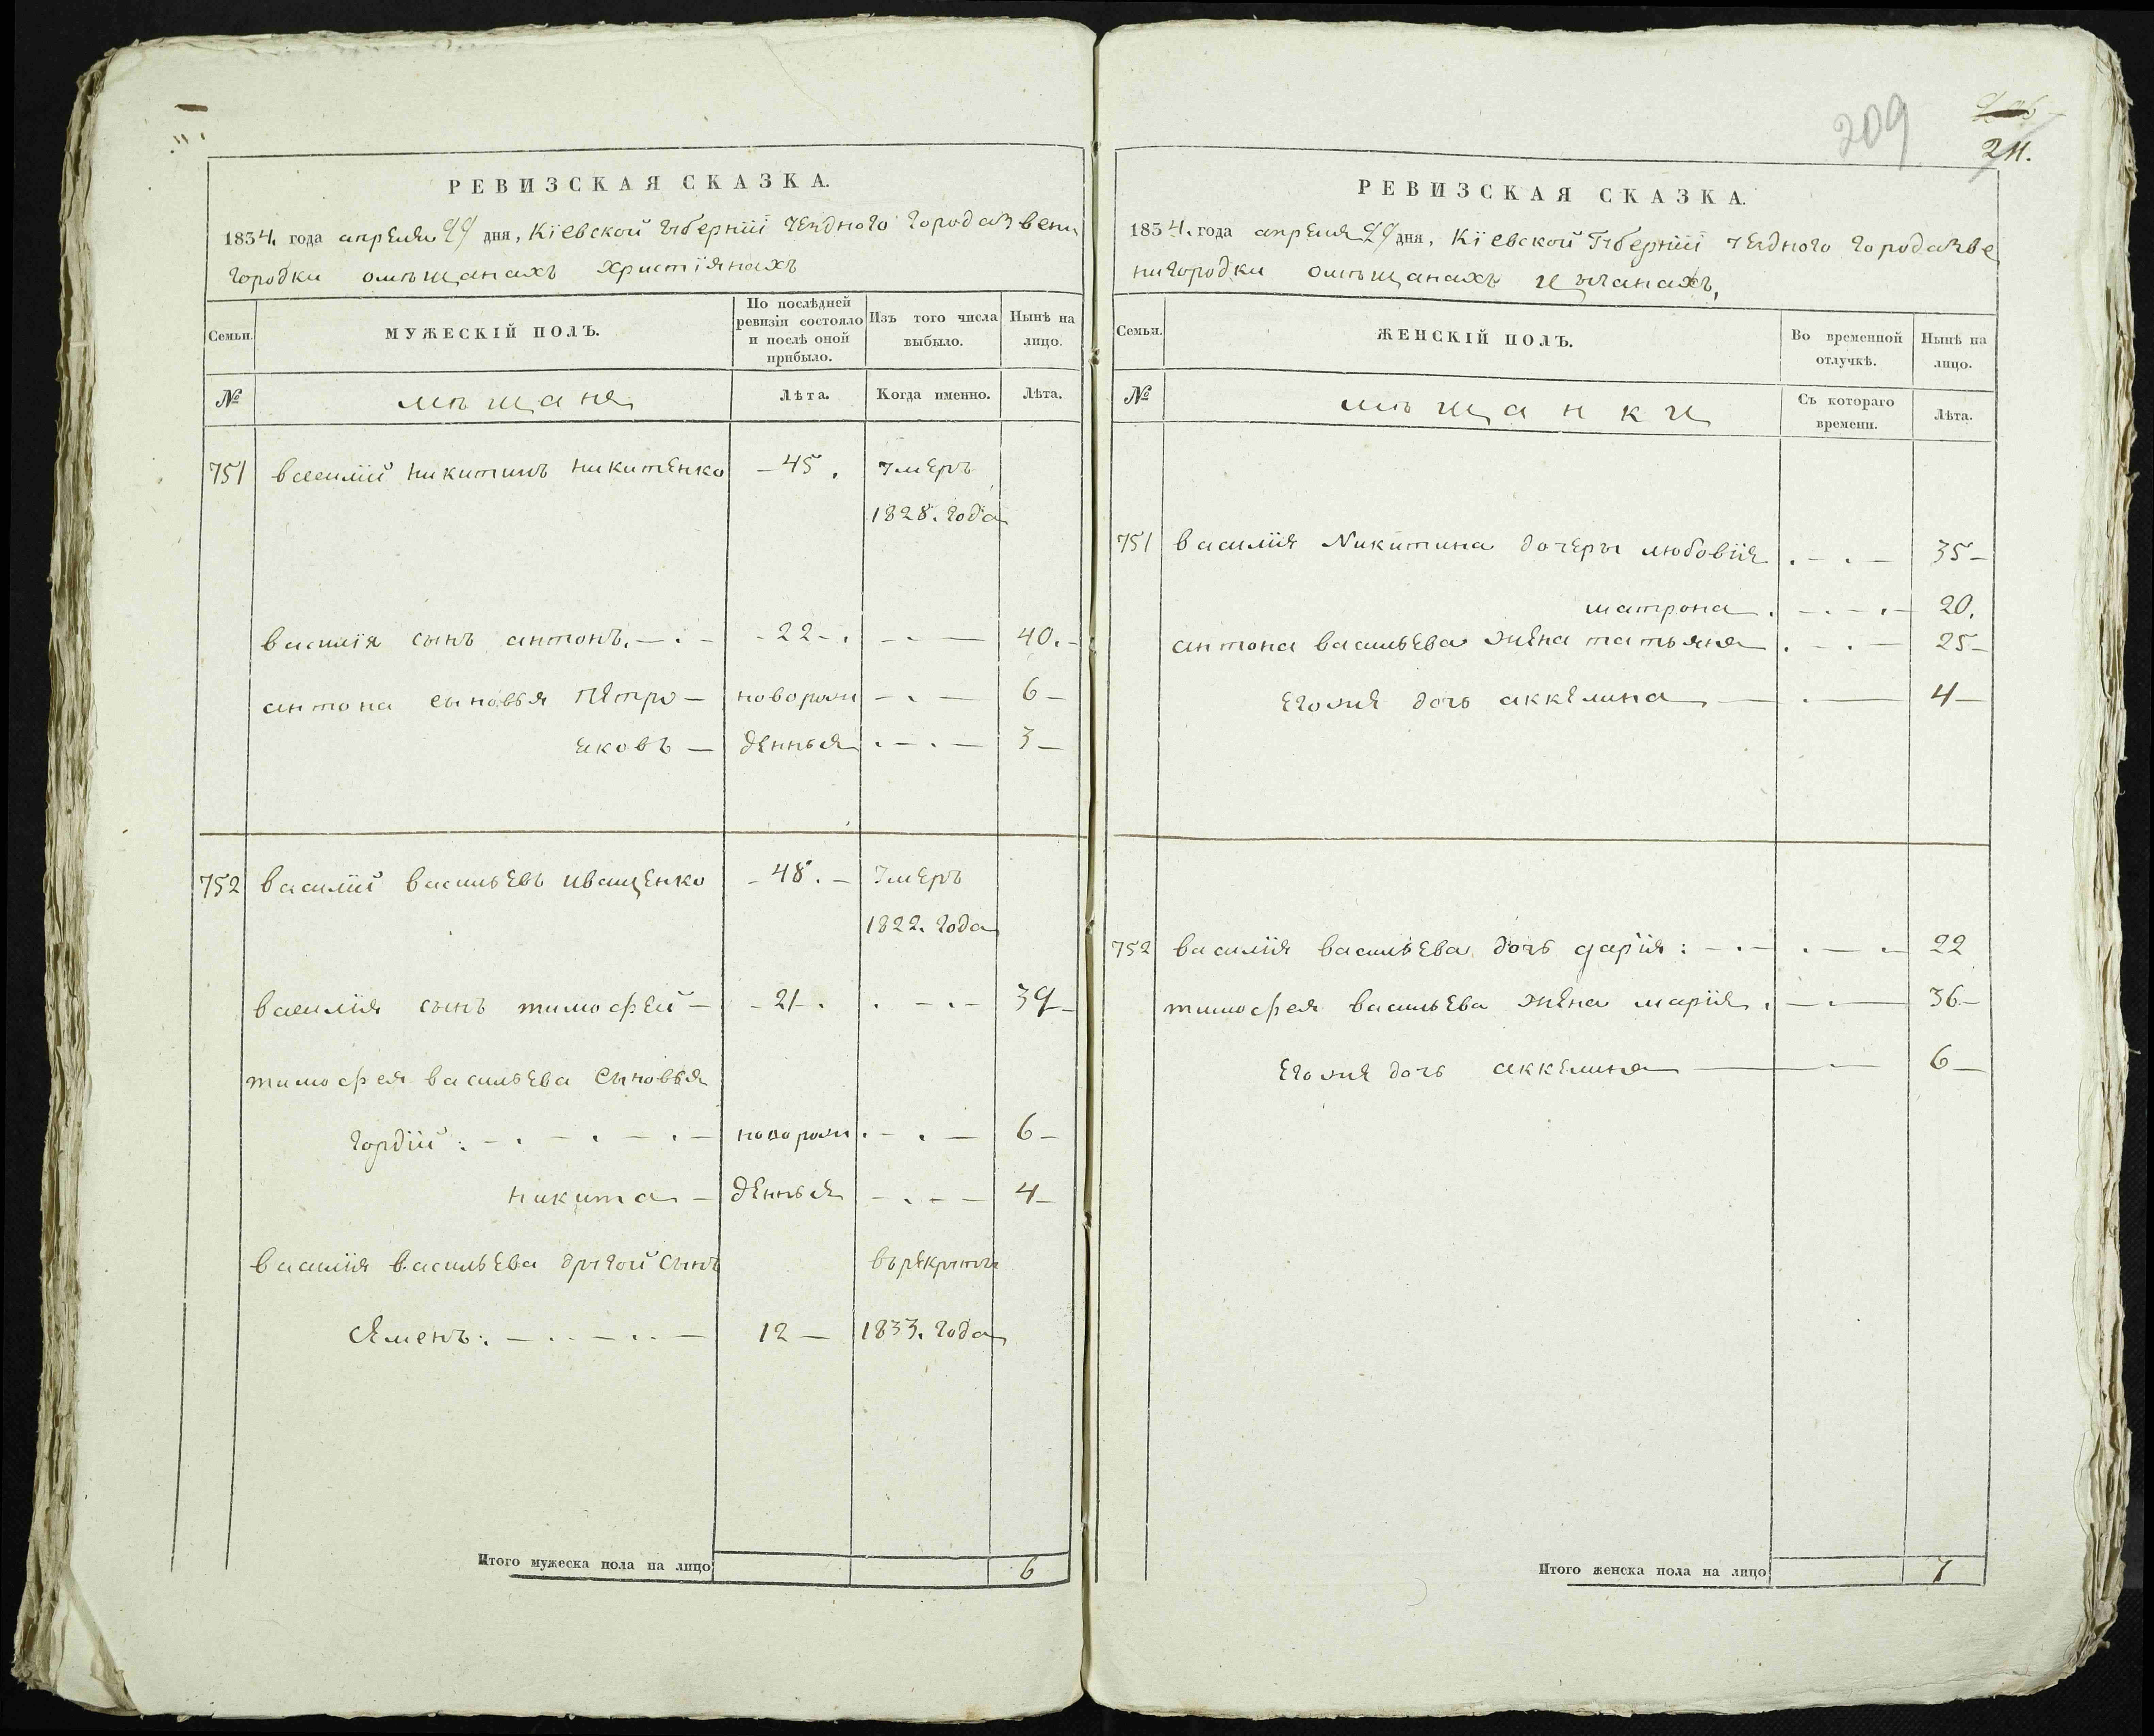 РЕВИЗСКАЯ СКАЗКА.
1834. года апреля 29 дня, Кіевской губерніи уездного города Звени
городки омѣщанахъ христіянахъ
Семьи.
МУЖЕСКІЙ ПОЛЪ.
По послѣдней ревизіи состояло и послѣ оной прибыло.
Изъ того числа выбыло.
Нынѣ на лицо.
№
мѣщане
Лѣта.
Когда именно.
Лѣта.
751 василій никитинъ никитенко – 45. умеръ
1828. года
василія сынъ антонъ. – 22 – 40.
антона сыновья петро – новорож – 6 –
яковъ – денныя – 3 –
752 василій васильевъ иващенко – 48. – умеръ
1822. года
василія сынъ тимофей – 21 – 39 –
тимофея васильева сыновья
гордій: – новорож – 6 –
никита – денныя – 4 –
василія васильева другой сынъ врекруты
семенъ: – 12 – 1833. года
Итого мужеска пола на лицо 6
209
211.
РЕВИЗСКАЯ СКАЗКА.
1834. года апреля 29 дня, Кіевской Губерніи уездного города Зве
нигородки омѣщанахъ
Семьи.
ЖЕНСКІЙ ПОЛЪ.
Во временной отлучкѣ.
Нынѣ на лицо.
№
мѣщанки
Съ котораго времени.
Лѣта.
751 василія Никитина дочеры любовія – 35 –
матрона. – 20.
антона васильева жена татьяна – 25 –
егоже дочь аккелина – 4 –
752 василія васильева дочь дарія: – 22
тимофея васильева жена марія. – 36 –
егоже дочь аккелина – 6 –
Итого женска пола на лицо 7